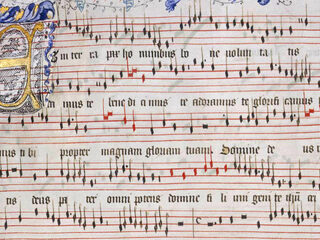 Et in ter ra pax ho minibus bo ne volun ta tis
da mus te bene di cimus te adoramus te glorifi camus
mus ti bi propter magnam gloriam tuam Domine de us
tis deus pa ter omni potens domine fi li uni geni te